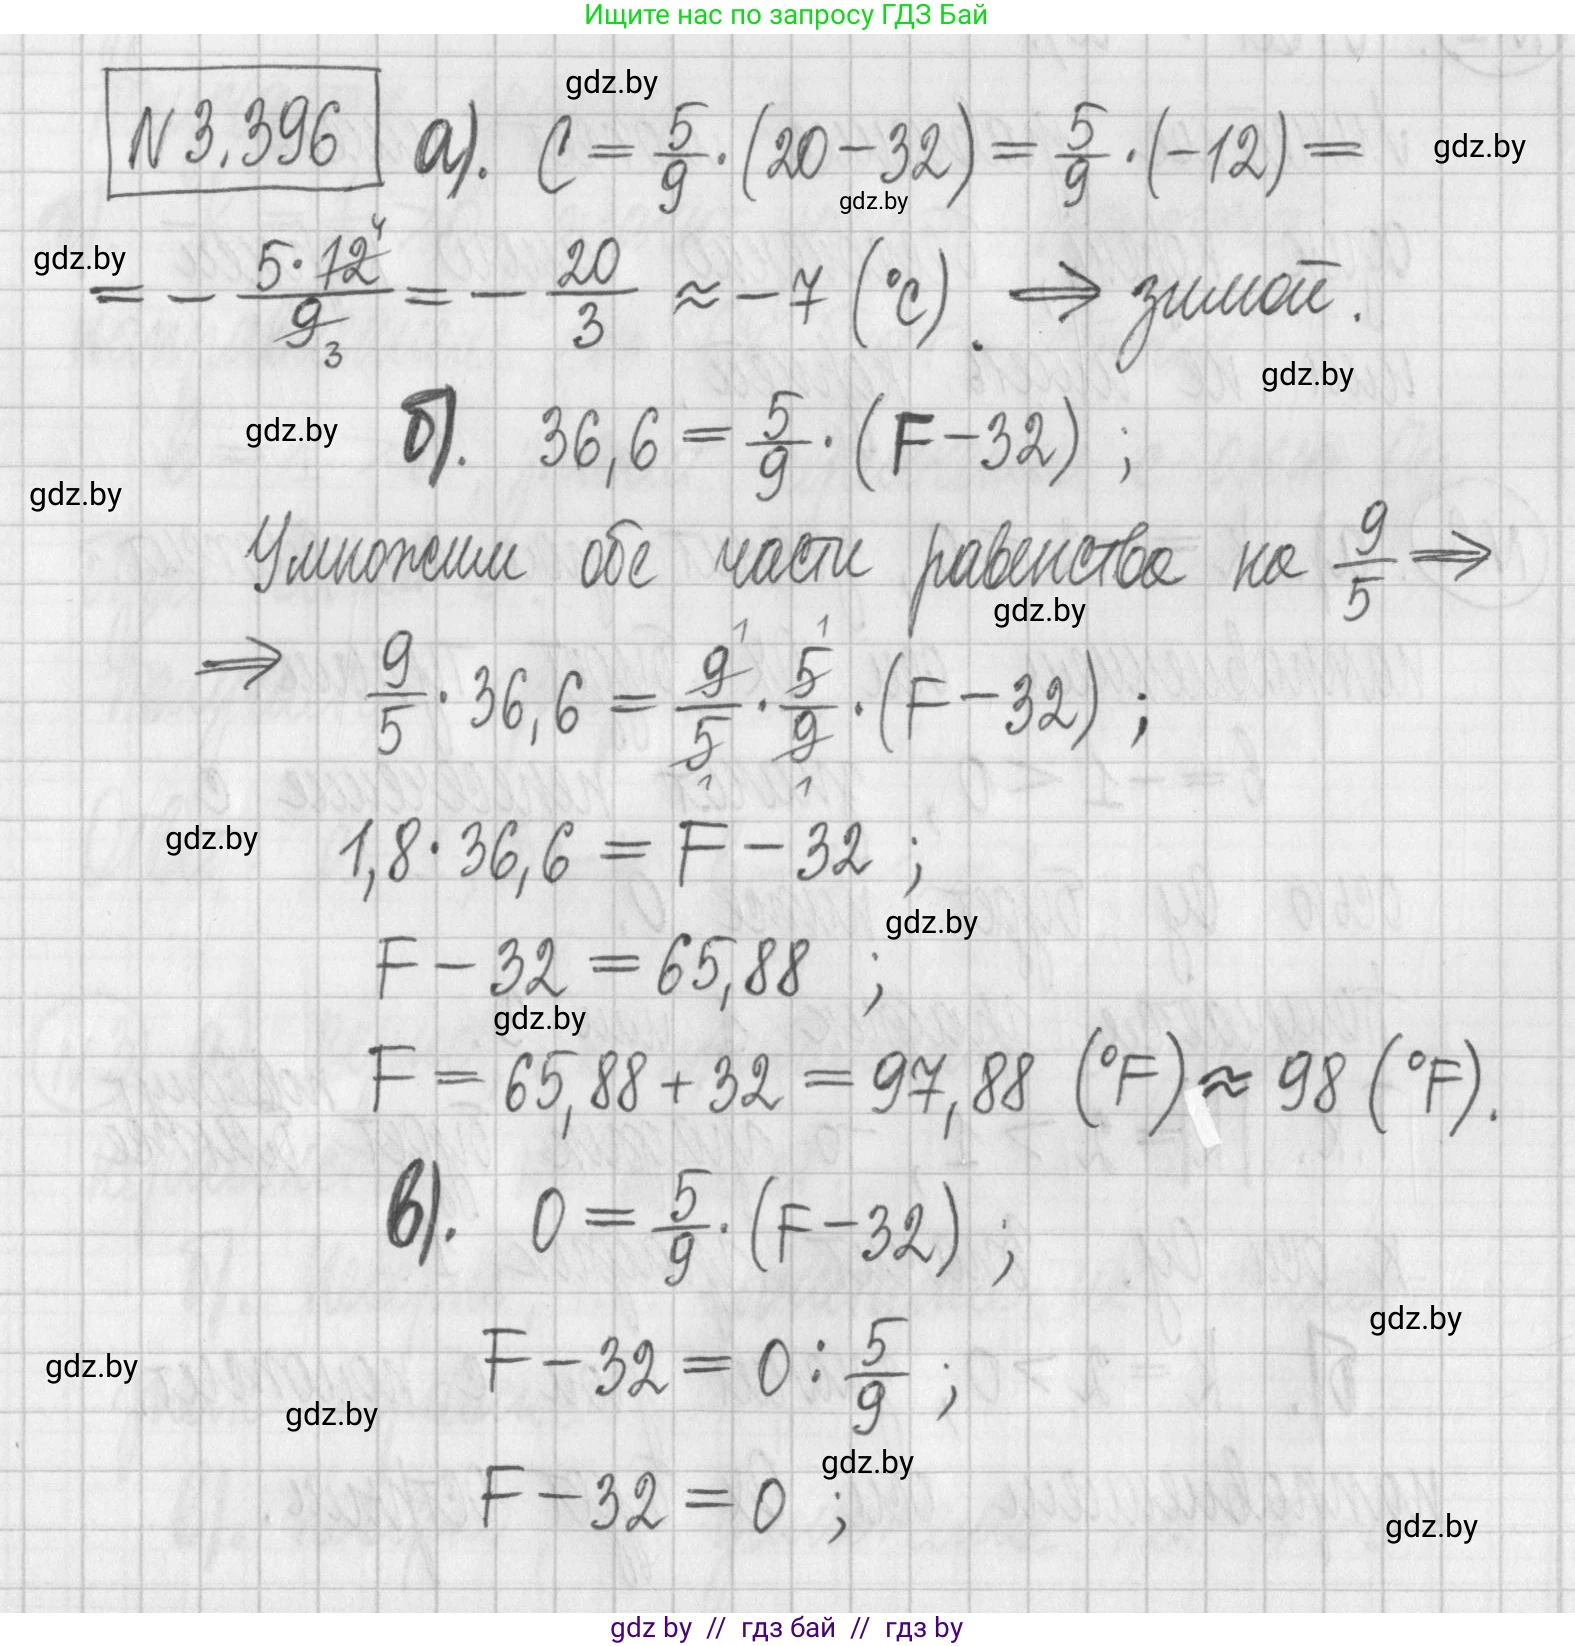 Ищите нас по запросу ГДЗ Бай
gdz.by
N 3.396 а). C = 5/9 · (20 − 32) = 5/9 · (−12) =
gdz.by
gdz.by
gdz.by
= − 5·12⁴/9₃ = − 20/3 ≈ −7 (°C). ⇒ зимой.
gdz.by
gdz.by
б). 36,6 = 5/9 · (F − 32) ;
gdz.by
Умножим обе части равенства на 9/5 ⇒
gdz.by
⇒ 9/5 · 36,6 = 9¹/5₁ · 5¹/9₁ · (F − 32) ;
gdz.by
1,8 · 36,6 = F − 32 ;
gdz.by
F − 32 = 65,88 ;
gdz.by
F = 65,88 + 32 = 97,88 (°F) ≈ 98 (°F).
в). 0 = 5/9 · (F − 32) ;
gdz.by
gdz.by
F − 32 = 0 : 5/9 ;
gdz.by
gdz.by
F − 32 = 0 ;
gdz.by
gdz by // гдз бай // гдз by